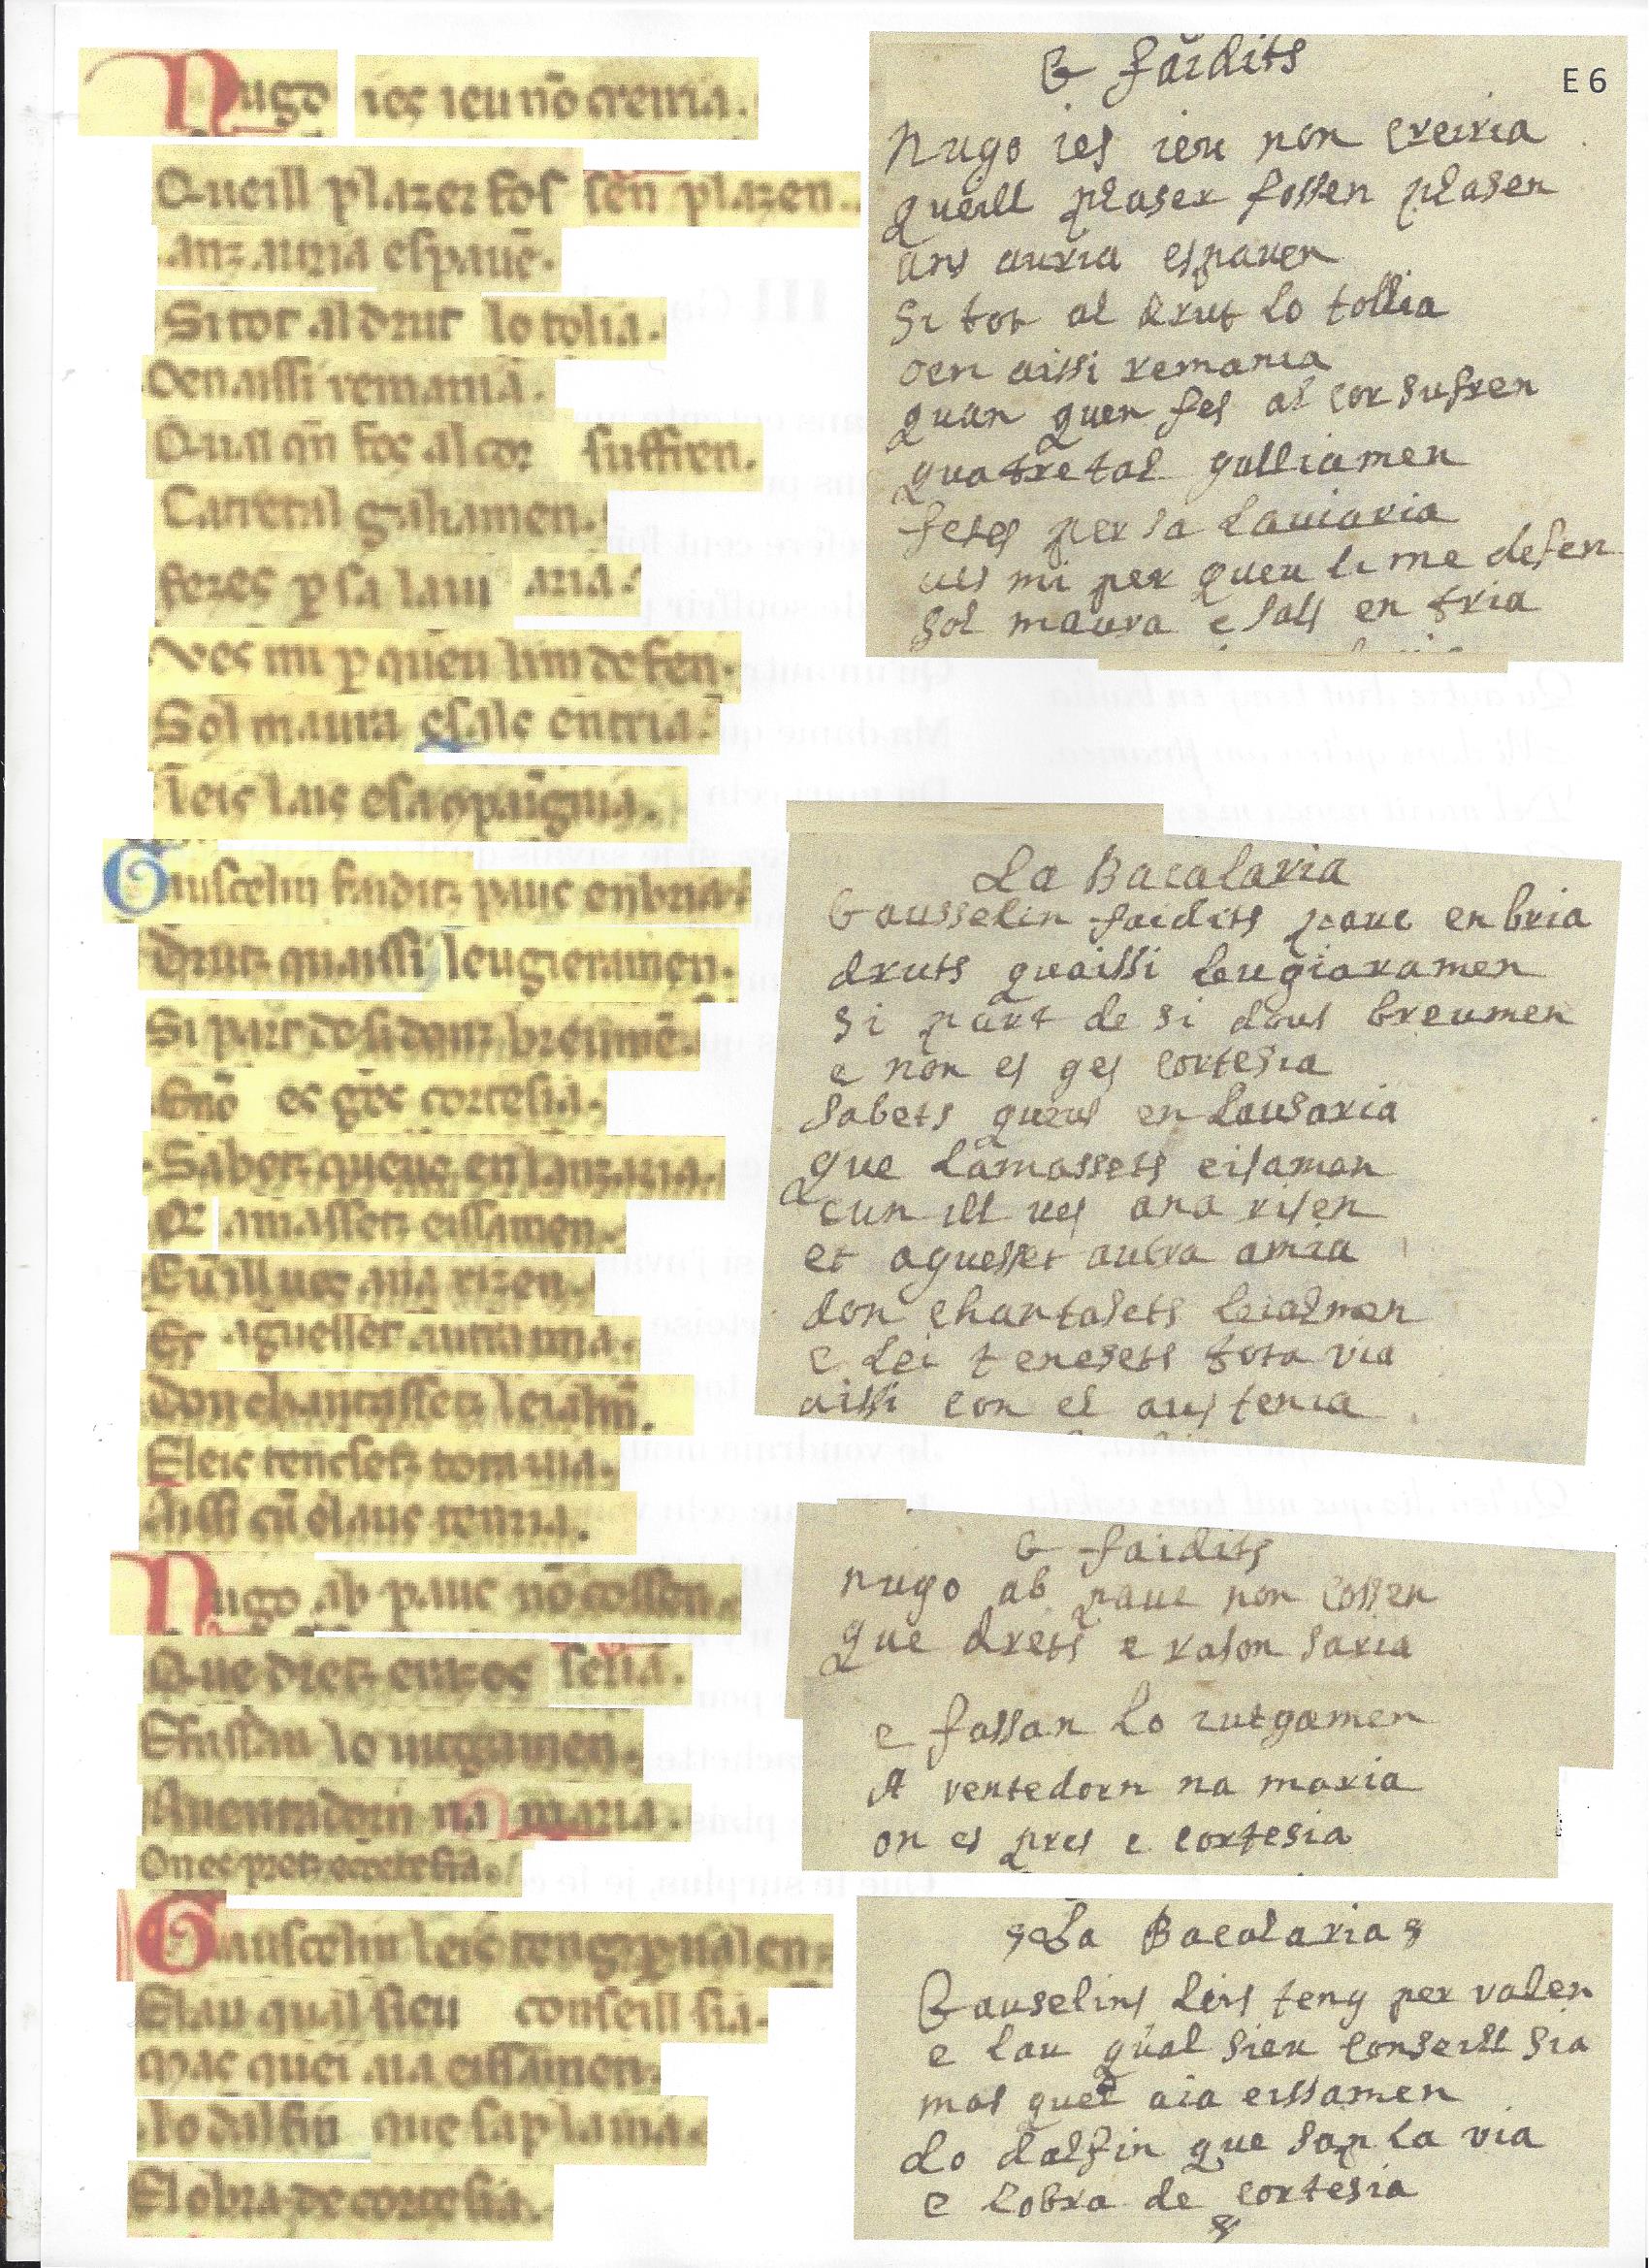 Nugo ies ieu nō creiria.
Queill plazer fos sen plazen.
anz auria espauē.
Si tot al drut lo tolia.
Oen aissi remania.
Quan qn̄ fos al cor suffren.
Catretal galiamen.
fezes p sa laui aria.
Ves mi p quieu lim defen.
Sol maura esals entria.
leis laus esa cpaignia.
Gauscelin faiditz pauc enbria.
drutz quaissi leugieramen.
Si part de sidonz breumē.
Enō es ges cortesia.
Sabetz queus en lauzaria.
Qe amassetz eissamen.
Cū ill ues aia rizen.
Et aguesset autramia.
don chantassetz leialm̄.
E leis tenesetz tota uia.
Aissi cū el aus tenia.
Nugo ab pauc nō cossen.
Que dretz erazos seria.
E fassan lo iutgamen.
A uentadorn na maria.
On es pretz ecortesia.
Gauscelin leis teng p ualen.
E lau qual sieu conseill sia.
Mas quei aia eissamen.
lo dalfin que sap la uia.
E lobra de cortesia.
G faidits
E 6
nugo ies ieu non creiria
queill plaser fossen plasen
ans auria espauen
Si tot al drut lo tollia
oen aissi remania
quan quen fes al cor sufren
quatretal galliamen
feses per sa lauiaria
ues mi per queu li me defen
sol maura e sals en tria
La Bacalaria
Gausselin faidits pauc enbria
druts quaissi leugiaramen
si part de si dous breumen
e non es ges cortesia
sabets queus en lausaria
que lamassets eisaman
cun ill ues ana risen
et aguesset autra amia
don chantasets leialmen
e lei tenesets tota via
aissi con el aus tenia
G faidits
nugo ab pauc non cossen
que drets e rason saria
e fassan lo iutgamen
A ventedorn na maria
on es pres e cortesia
La Bacalaria
Gauselins leis teng per valen
e lau qual sieu conseill sia
mas quel aia eissamen
lo dalfin que sap la via
e lobra de cortesia